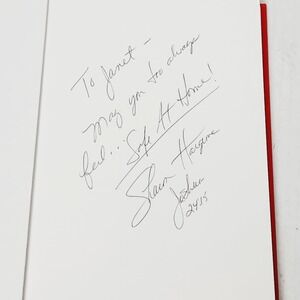 To Janet –
May you too always
feel... Safe At Home!
Sharon
Joshua
24:15